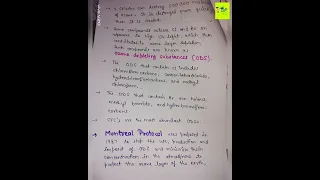 → 1 chlorine can destroy 100,000 molecules
of ozone. It is destroyed more quickly
than it is created.
→ Some compounds release Cl and Br on
exposure to high UV light, which then
contributes to ozone layer depletion.
Such compounds are known as
ozone depleting substances (ODS).
→ The ODS that contain Cl includes
chlorofluoro carbons, carbontetrachloride,
hydrochlorofluorocarbons, and methyl
chloroform.
→ The ODS that contain Br are halons,
methyl bromide, and hydrobromofluoro
carbons.
→ CFC's are the most abundant ODS.
→ Montreal Protocol was proposed in
1987 to stop the use, production and
import of ODS and minimise their
concentration in the atmosphere to
protect the ozone layer of the earth.